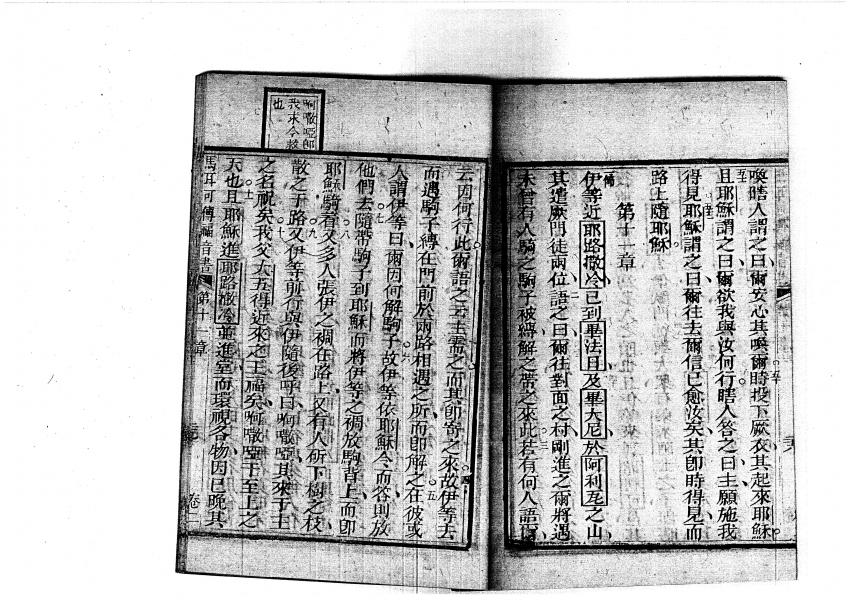 喚瞎人謂之曰爾安心其喚爾時投下厥衣其起來耶穌
且耶穌謂之曰爾欲我與汝何行瞎人答之曰主願施我
得見耶穌謂之曰爾往去爾信已愈汝矣其即時得見而
路上隨耶穌
第十一章
伊等近耶路撒冷已到畢法日及畢大尼於阿利瓦之山
其遣厥門徒兩位語之曰爾往對面之村剛進之爾將遇
未曾有人騎之駒子被縛解之帶之來此若有何人語爾
云因何行此爾語之云主需之而其即寄之來故伊等去
而遇駒子縛在門前於兩路相遇之所而即解之在彼或
人謂伊等曰爾因何解駒子故伊等依耶穌令而答則放
他們去隨帶駒子到耶穌而將伊等之裯放駒背上而即
耶穌騎有又多人張伊之裯在路上又有人斫下樹之枝
散之于路又伊等前行與伊隨後呼曰啊嗷啞其來于主
之名祝矣我父大五得近來之王福矣啊嗷啞于至上之
天也且耶穌進耶路撒冷並進室而環視各物因已晚其
啊嗷啞即
我求今救
也
馬耳可傳福音書
第十一章
卷二